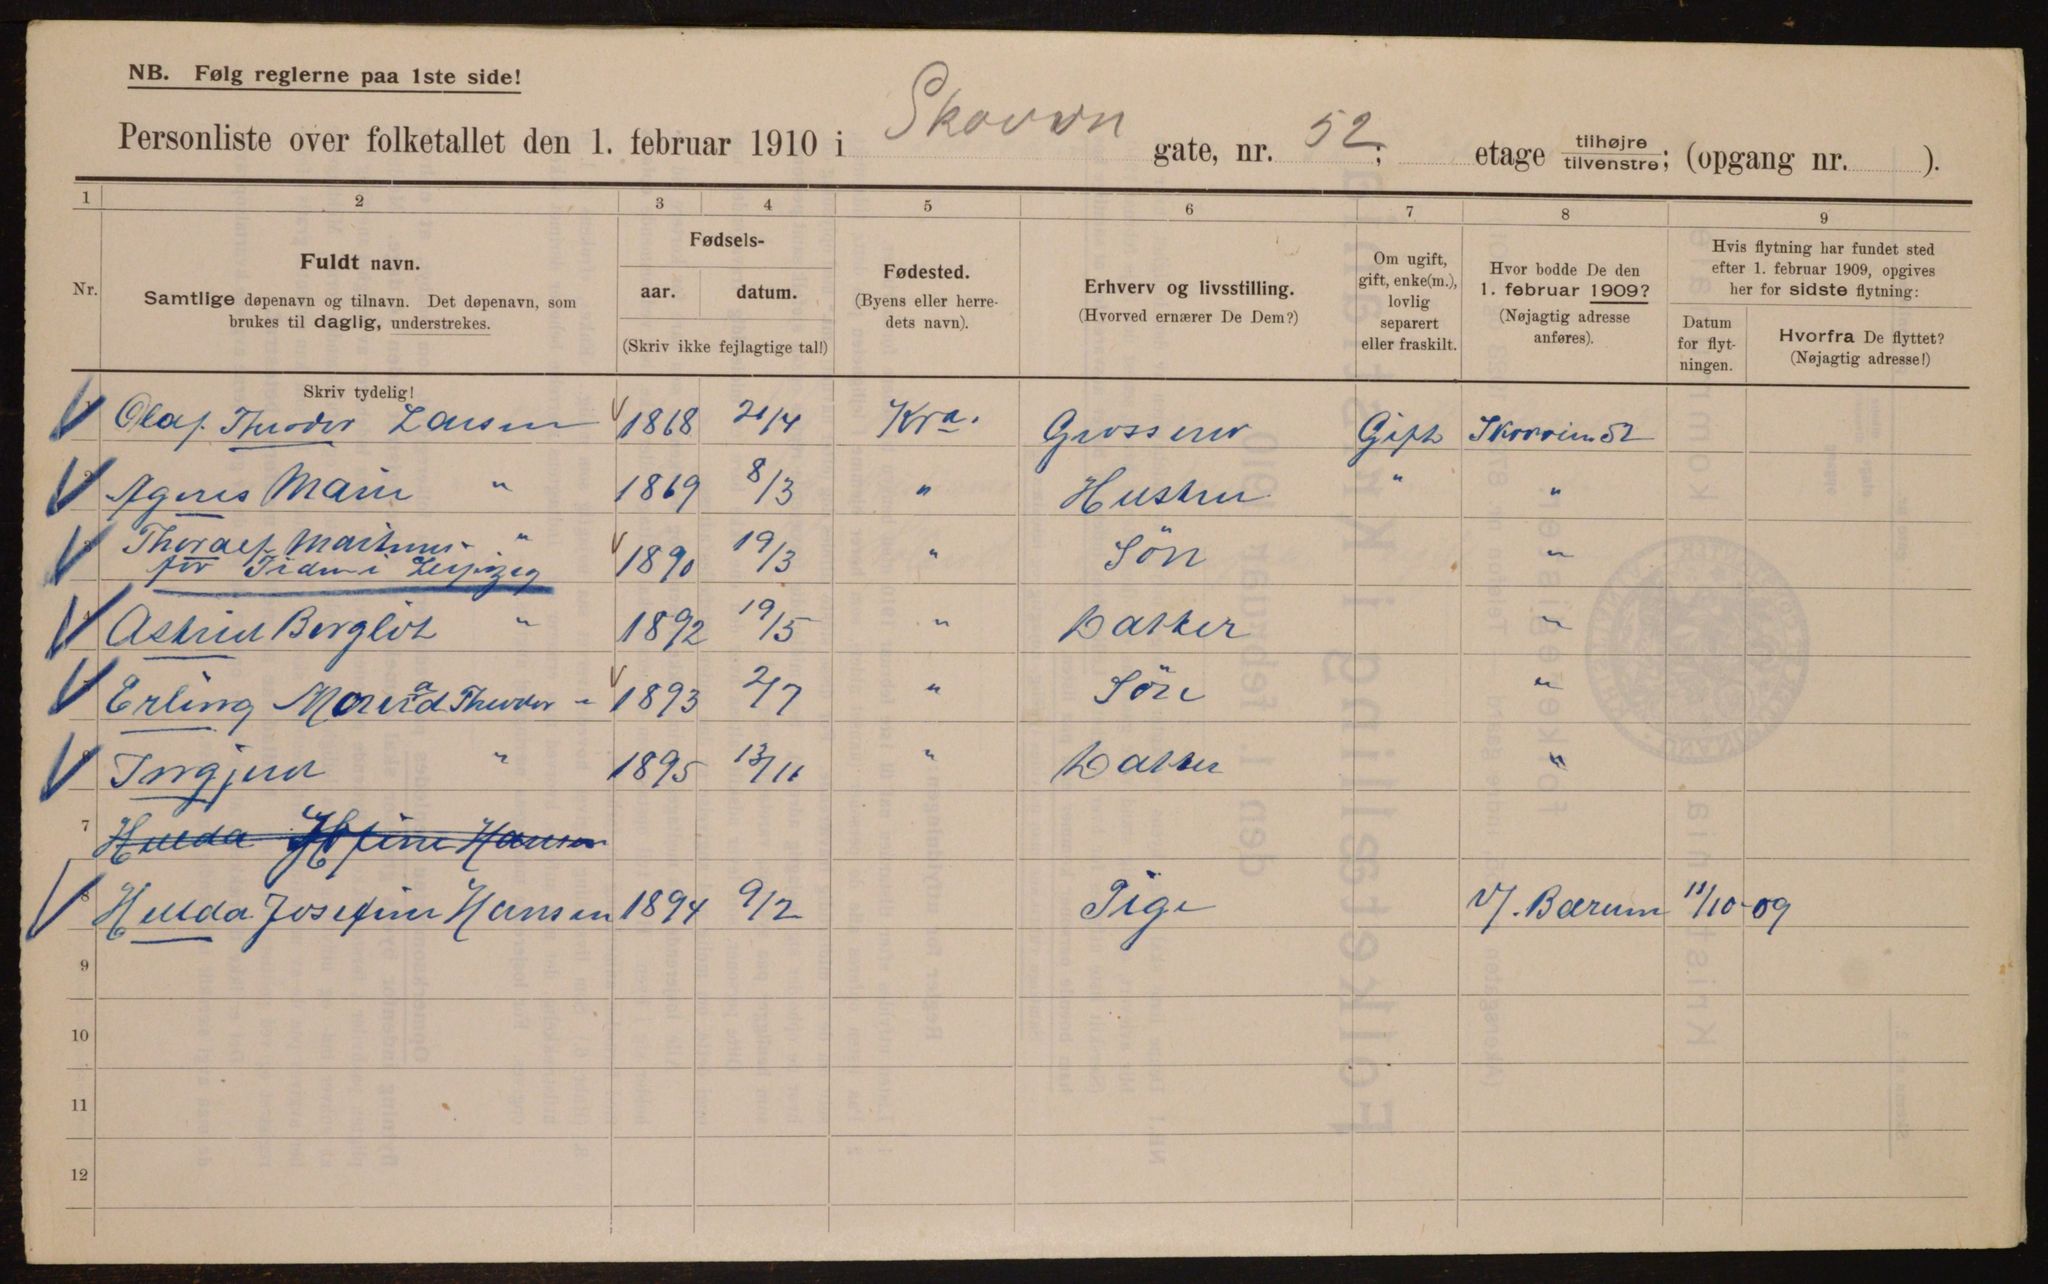 NB. Følg reglerne paa 1ste side!
Personliste over folketallet den 1. februar 1910 i Skovvn gate, nr. 52; etage tilhøjre tilvenstre; (opgang nr. ).
1 2 3 4 5 6 7 8 9
Nr.
Fuldt navn.
Samtlige døpenavn og tilnavn. Det døpenavn, som
brukes til daglig, understrekes.
Fødsels-
aar. datum.
(Skriv ikke fejlagtige tal!)
Fødested.
(Byens eller herre-
dets navn).
Erhverv og livsstilling.
(Hvorved ernærer De Dem?)
Om ugift,
gift, enke(m.),
lovlig
separert
eller fraskilt.
Hvor bodde De den
1. februar 1909?
(Nøjagtig adresse
anføres).
Hvis flytning har fundet sted
efter 1. februar 1909, opgives
her for sidste flytning:
Datum
for flyt-
ningen.
Hvorfra De flyttet?
(Nøjagtig adresse!)
Skriv tydelig!
Olaf Theodor Larsen 1868 21/4 Kra. Grosserer Gift 52
2 Agnes Marie " 1869 8/3 " Hustru " "
3 Thoralf "
for Tiden i Leipzig 1890 19/3 " Søn "
4 Astrid Bergliot " 1892 19/5 " Datter "
Erling Theodor " 1893 2/7 " Søn "
Ingjerd " 1895 13/11 " Datter "
7 Hulda Josefine Hansen
8 Hulda Josefine Hansen 1894 9/2 Pige V/. Bærum 11/10-09
9
10
11
12